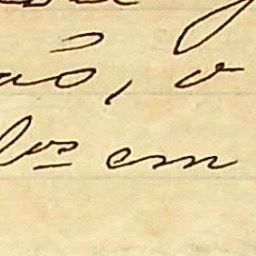 ão, o
los em